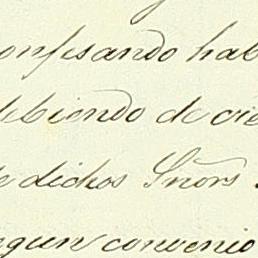 onfesando hab
debiendo de cre
e dichos Sñors
ngun convenio